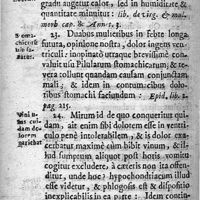 gradu augetur calor, sed in humiditate &
quantitate minuitur: lib. de virg. & mul.
morb. cap. 8. Anno: 3.
23. Duabus mulieribus in febre longa,
futura, opinione nostra, dolor ingens ven-
triculi: inopinatò utraque brevissimè con-
valuit usu Pilularum stomachicarum; & te-
vera tollunt quandam causam conjunctam
mali; & idem in contumacibus dolo-
ribus stomachi faciundum: Epid. lib. 2.
pag. 215.
24. Mirum id de quo conqueritur qui-
dam, ait enim sibi dolorem esse in ventri-
culo penè intolerabilem, & is dolor exa-
cerbatur maximè cùm bibit vinum, & il-
lud sumptum aliquot post horis vomitu
cogitur excludere, à cæteris non ita offen-
ditur, unde hoc? hypochondriacum illud
esse videtur, & phlogosis est & dispositio
inexplicabilis in ea parte: Idem concin-